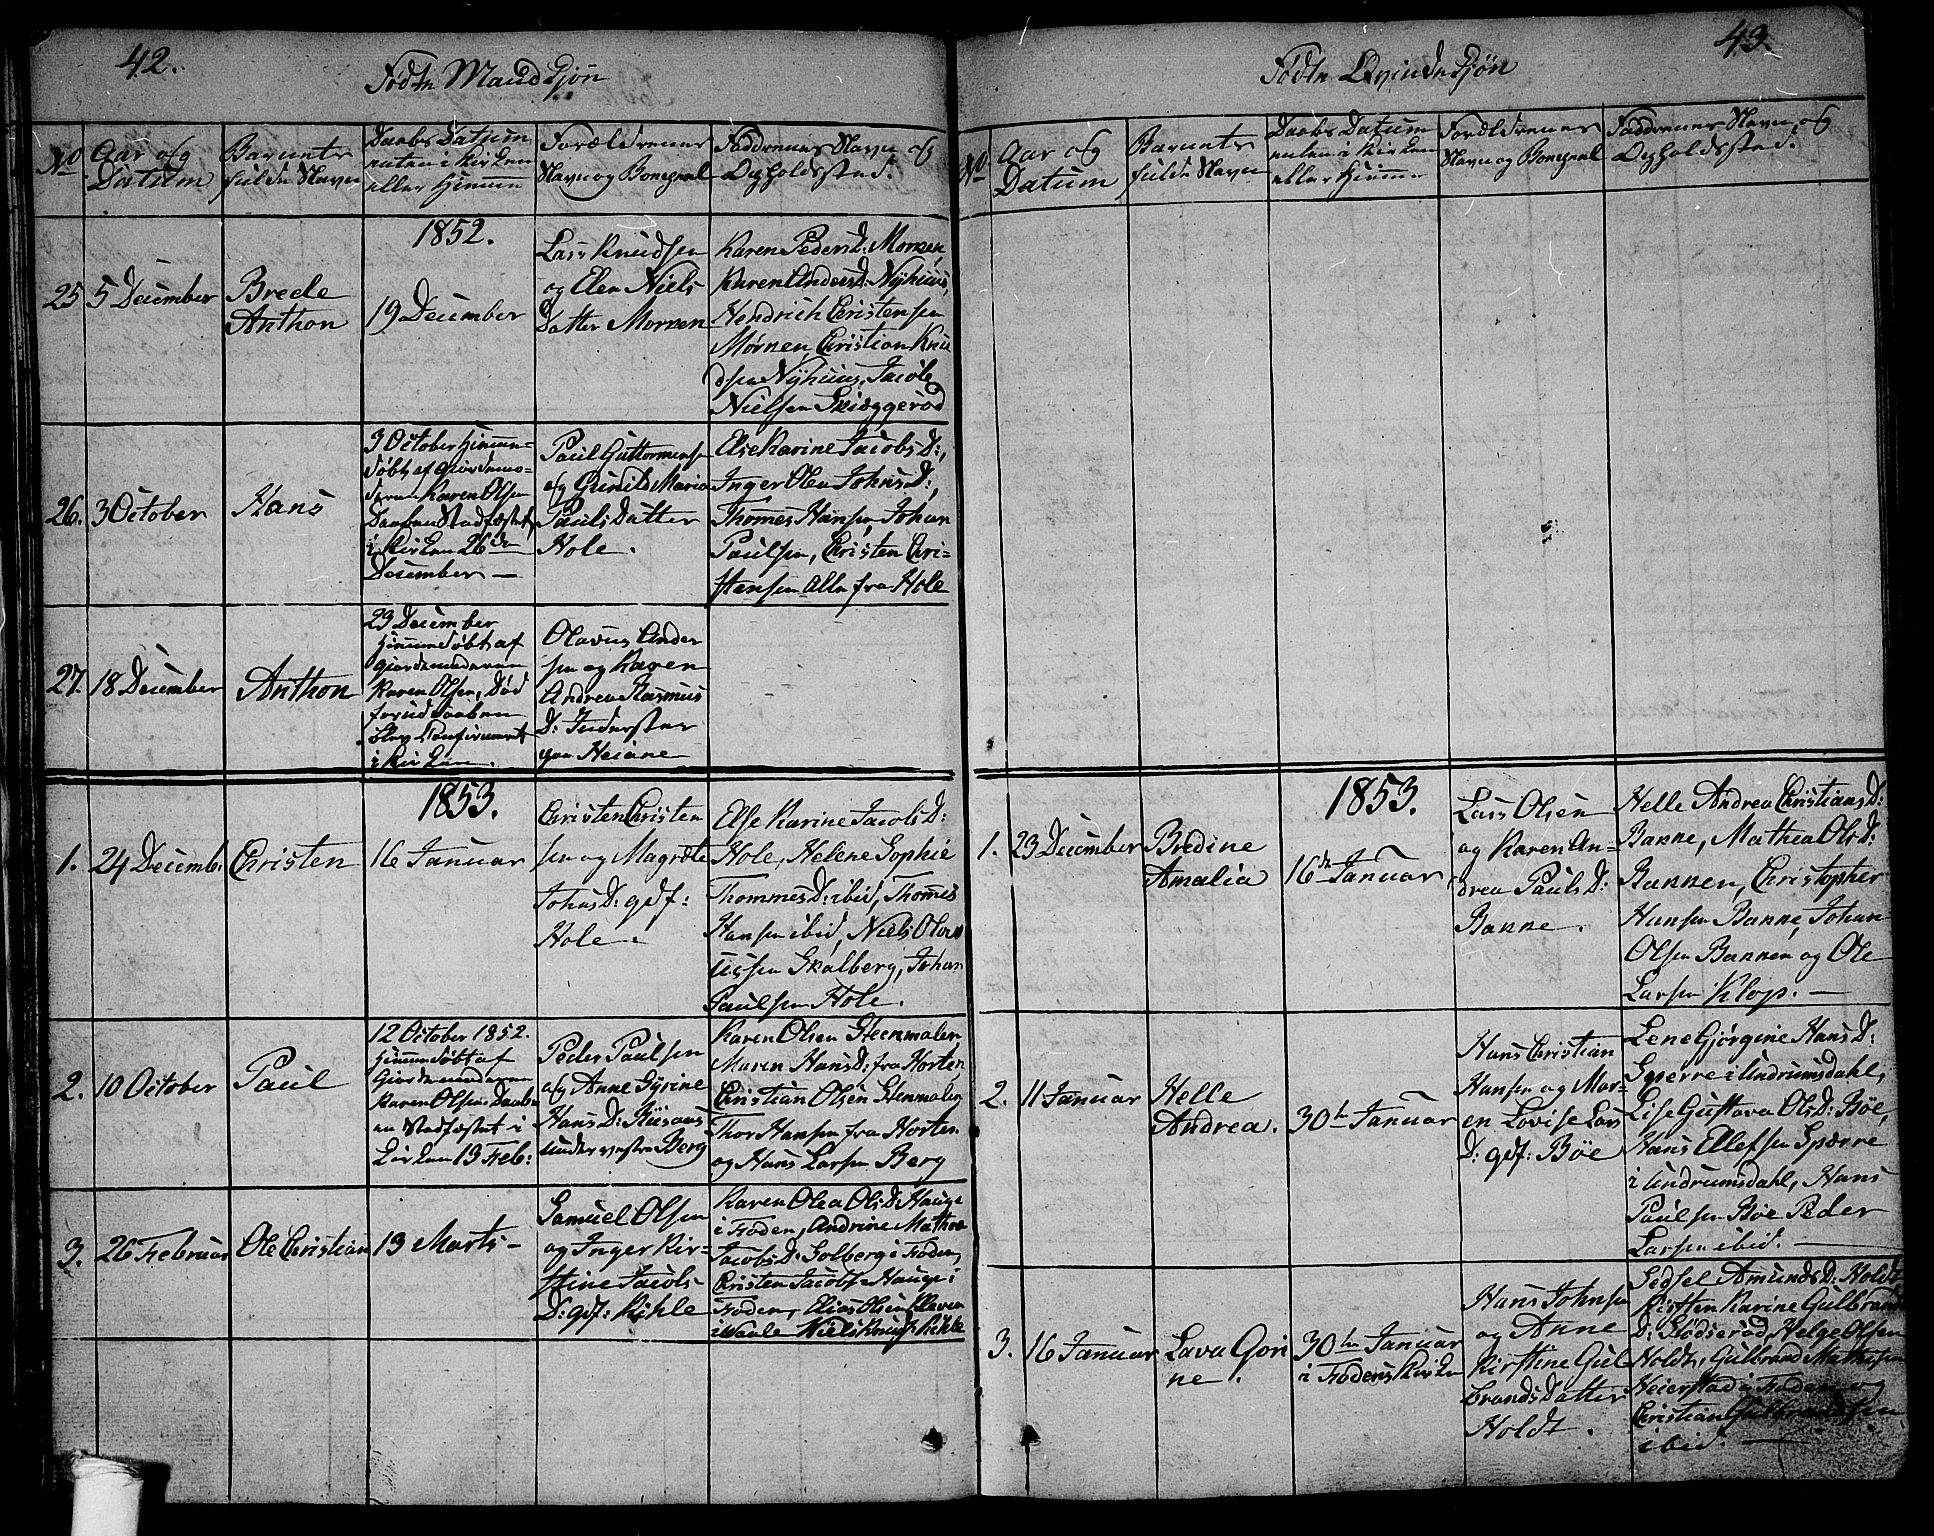 42.
Fødte Mandkjøn
No
Aar og
Datum
Barnets
fulde Navn
Daabs Datum
enten i Kirken
eller Hiemme
Forældrenes
Navn og Boepæl
Faddrenes Navn og
Opholdssted.
1852.
25
5 December
Brede
Anthon
19 December
Lars Knudsen
og Elen Niels
Datter Mornen
Karen Peders D: Mornen,
Karen Anders D: Nyhuus,
Hendrich Christensen
Mørnen, Christian Knu
dsen Nyhuus, Jacob
Nielsen Skiæggerød
26.
3 October
Hans
3 October Hiemme-
døbt af giordemo-
deren Karen Olsen
Daaben Stadfæstet
i Kirken 26de
December —
Paul Guttormsen
og Gunild Maria
Pauls Datter
Hole.
Else Karine Jacobs D:,
Inger Olea Johns D:,
Thomes Hansen, Johan
Paulsen, Christen Chri-
stensen Alle fra Hole
27.
18 December
Anthon
23 December
Hiemmedøbt af
giordemoderen
Karen Olsen, Død
forud Daaben
blev Confirmeret
i Kirken.
Olavus Ander
sen og Karen
Andrea Rasmus
D: Inderster
paa Heiane
1853.
1.
24 Decemb.
Christen
16 Januar
Christen Christen
sen og Magrete
Johns D: gdf:
Hole.
Else Karine Jacobs D:
Hole, Helene Sophie
Thommes D: ibid, Thomes
Hansen ibid, Niels Olav
ussen Skalberg, Johan
Paulsen Hole.
2.
10 October
Paul
12 October 1852.
Hiemmedøbt af
Giordemoderen
Karen Olsen Daab
en Stadfæstet i
Kirken 13 Feb:
Peder Paulsen
og Anne Gyrine
Hans D: Huusms
under vestre Berg
Karen Olsen Steenmalen
Maren Hans D: fra Horten
Christian Olsen Stenmalen
Thor Hansen fra Horten
og Hans Larsen Berg
3.
26 Februar
Ole Christian
13 Marts —
Samuel Olsen
og Inger Kir-
stine Jacobs
D: gdf: Kihle
Karen Olea Ols D: Hauge
i Foden, Andrine Mathea
Jacobs D: Solberg i Foden,
Christen Jacobs: Hauge i
Foden, Elias Olsen Kleven
i Vaale Niels Knuds: Kihle
43.
Fødte Qvindekjøn
No
Aar og
Datum
Barnets
fulde Navn
Daabs Datum
enten i Kirken
eller Hiemme
Forældrenes
Navn og Boepæl
Faddrenes Navn og
Opholdssted.
1853.
1.
23 December
Bredine
Amalia
16de Januar
Lars Olsen
og Karen An-
drea Pauls D:
Banne.
Helle Andrea Christians D:
Banne, Mathea Ols D:
Bannen, Christopher
Hansen Banne, Johan
Olsen Bannen og Ole
Larsen Klop. —
2.
11 Januar
Helle
Andrea.
30te Januar
Hans Christian
Hansen og Mar-
en Lovise Lars
D: gdf: Böe
Lene Gjørgine Hans D:
Sperre i Undrumsdahl,
Lise Gustava Ols D: Böe,
Hans Ellefsen Spærre
i Undrumsdahl, Hans
Paulsen Böe Peder
Larsen ibid. —
3.
16 Januar
Lava Gori
ne.
30te Januar
i Fodens Kirke
Hans Johnsen
og Anne
Kirstine Gul
brands Datter
Holdt.
Sedsel Amunds D: Holdt
Kirsten Karine Gulbrands
D: Rødserød, Helge Olsen
Holdt, Gulbrand Mathisen
Heierstad i Foden og
Christian Gulbrandsen
ibid. —